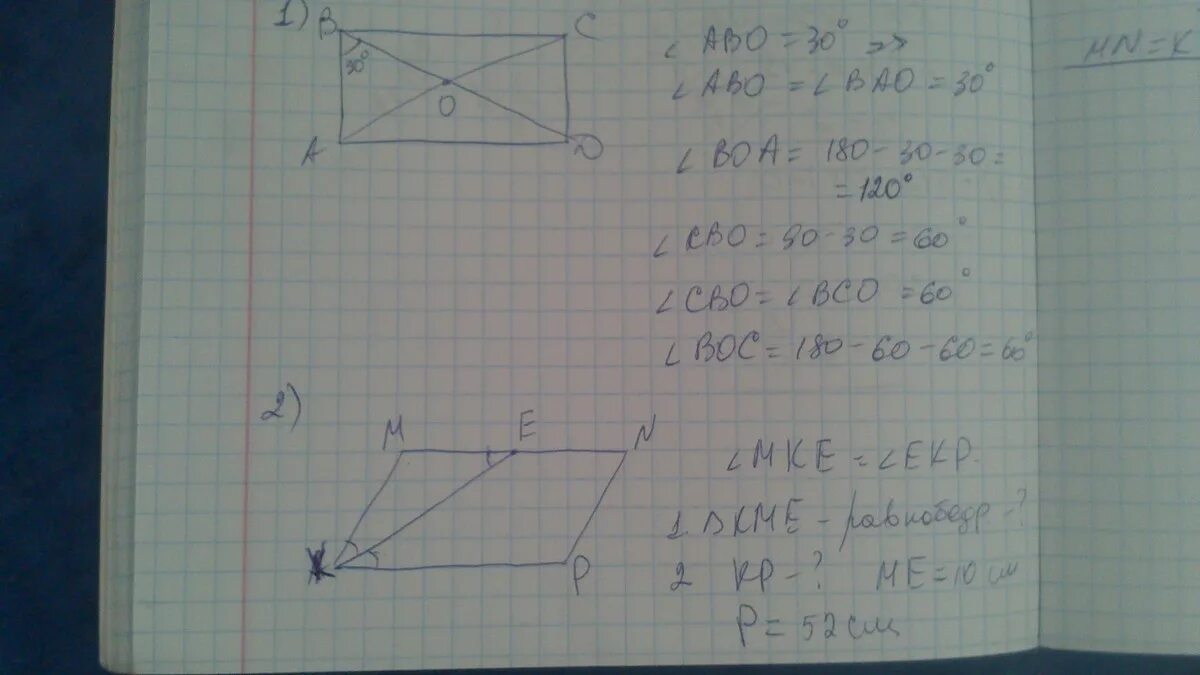 1)
B
C
30°
O
A
D
∠ ABO = 30° =>
∠ ABO = ∠ BAO = 30°
∠ BOA = 180 - 30 - 30 =
= 120°
∠ CBO = 90 - 30 = 60°
∠ CBO = ∠ BCO = 60°
∠ BOC = 180 - 60 - 60 = 60°
MN = K
2)
M
E
N
K
P
∠ MKE = ∠ EKP.
1. Δ KME - равнобедр - ?
2 KP - ? ME = 10 см
P = 52 см